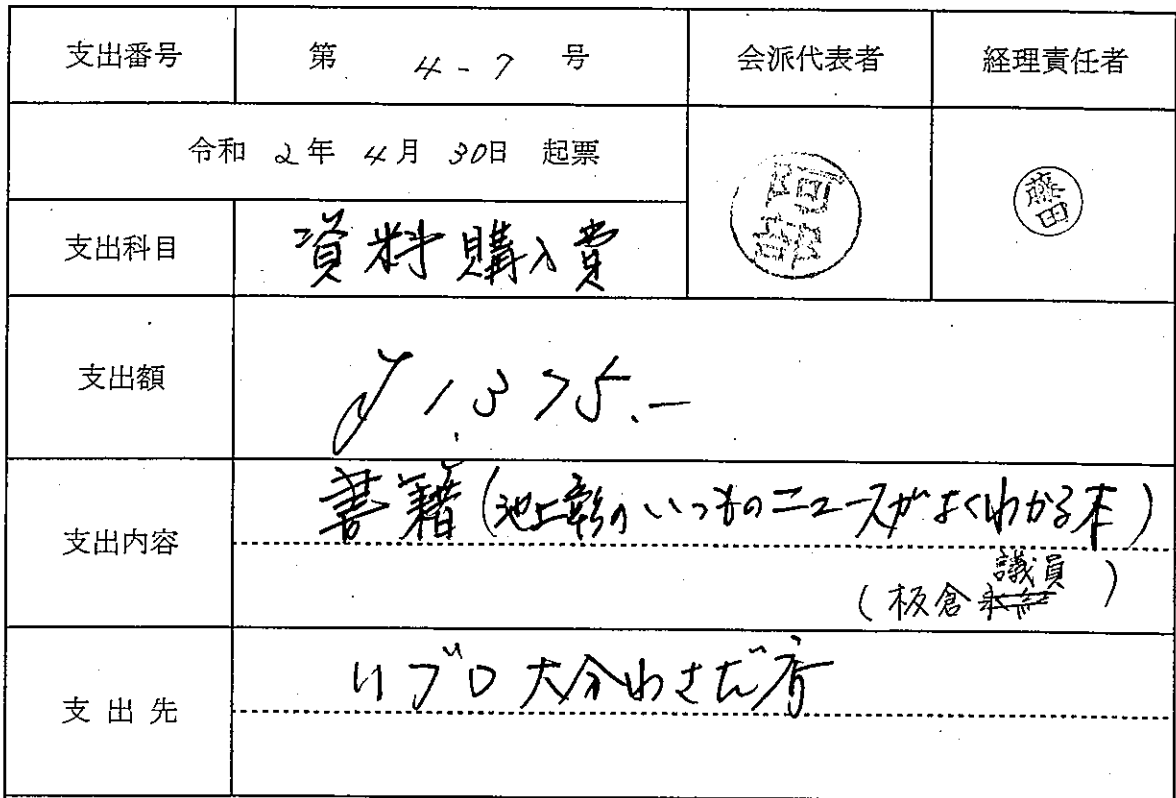 支出番号 第 4-7 号 会派代表者 経理責任者
令和 2年 4月 30日 起票
阿部 藤田
支出科目 資料購入費
支出額 ¥1,375.-
支出内容 書籍(池上彰のいつものニュースがよくわかる本)
(板倉 議員)
支出先 リブロ大分わさだ店